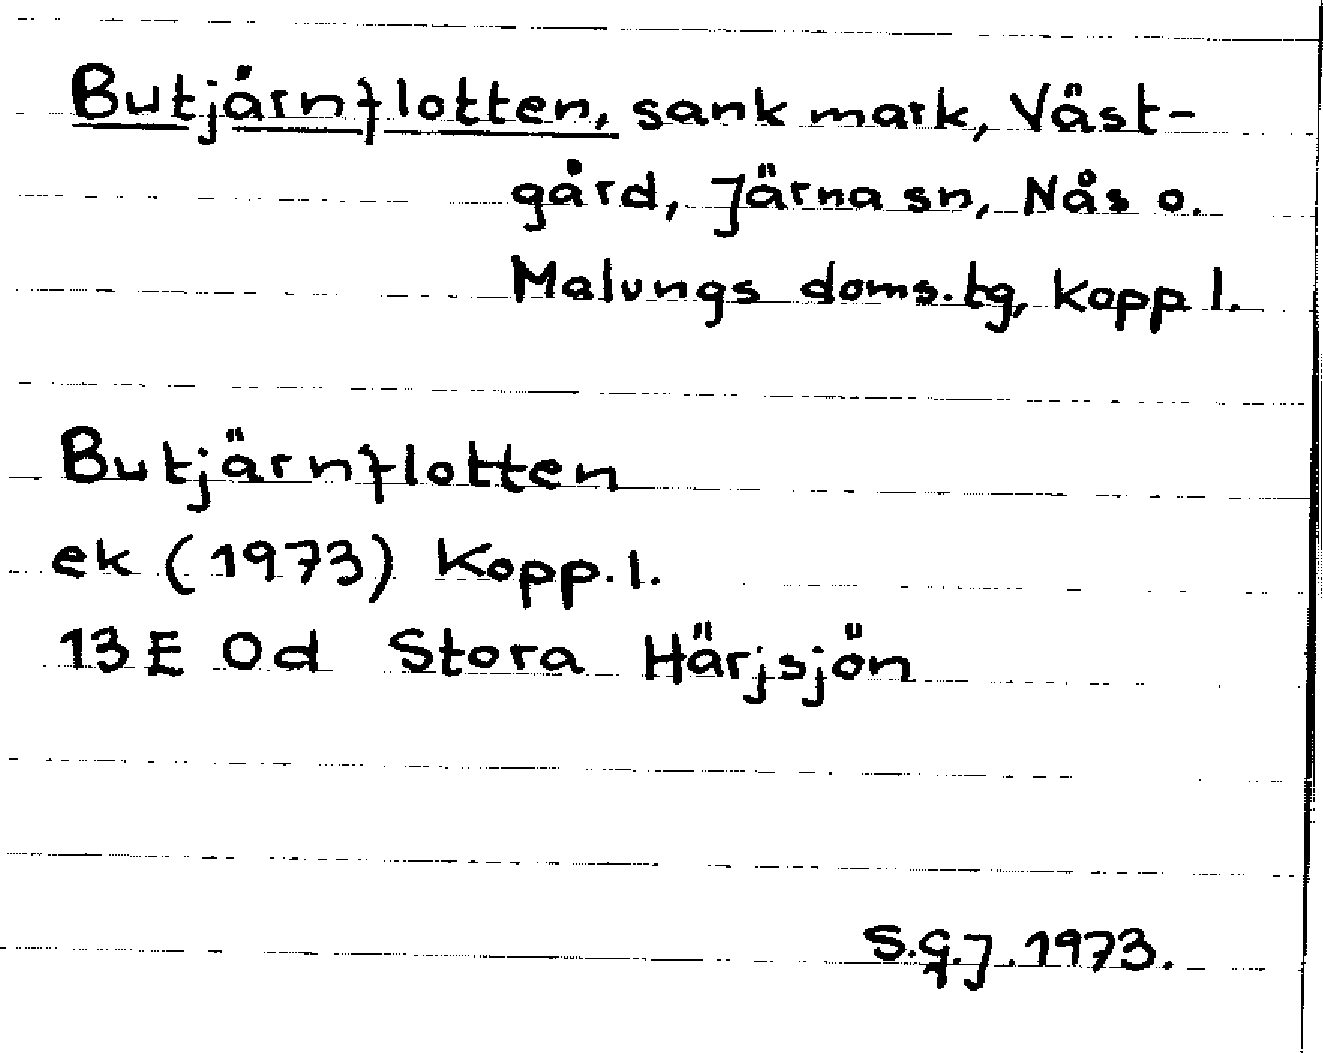 Butjärnflotten, sank mark, Väst-
gård, Järna sn, Nås o.
Malungs doms.tg, Kopp l.
Butjärnflotten
ek (1973) Kopp.l.
13E 0d Stora Härjsjön
S.G.J. 1973.